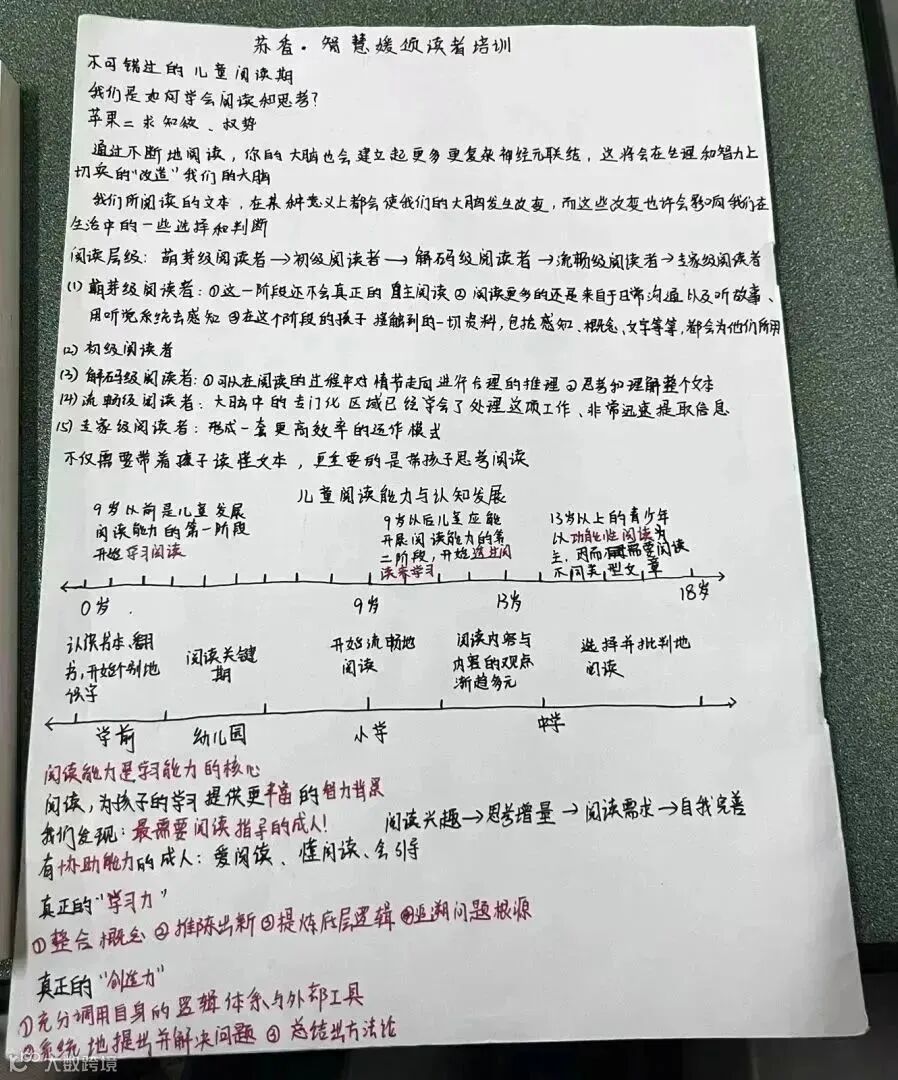 苏香·智慧媛领读者培训
不可错过的儿童阅读期
我们是如何学会阅读和思考?
苹果=求知欲、权势
通过不断地阅读,你的大脑也会建立起更多更复杂神经元联结,这将会在生理和智力上
切实的"改造"我们的大脑
我们所阅读的文本,在某种意义上都会使我们的大脑发生改变,而这些改变也许会影响我们在
生活中的一些选择和判断
阅读层级:萌芽级阅读者→初级阅读者→解码级阅读者→流畅级阅读者→专家级阅读者
(1)萌芽级阅读者:①这一阶段还不会真正的自主阅读②阅读更多的还是来自于日常沟通以及听故事、
用听觉系统去感知③在这个阶段的孩子接触到的一切资料,包括感知、概念、文字等等,都会为他们所用
(2)初级阅读者
(3)解码级阅读者:①可以在阅读的过程中对情节走向进行合理的推理②思考和理解整个文本
(4)流畅级阅读者:大脑中的专门化区域已经学会了处理这项工作、非常迅速提取信息
(5)专家级阅读者:形成一套更高效率的运作模式
不仅需要带着孩子读懂文本,更重要的是带孩子思考阅读
儿童阅读能力与认知发展
9岁以前是儿童发展
阅读能力的第一阶段
开始学习阅读
9岁以后儿童应能
开展阅读能力的第
二阶段,开始透过阅
读来学习
13岁以上的青少年
以功能性阅读为
主,因而需要阅读
不同类型文章
0岁
9岁
13岁
18岁
认识书本、翻
书,开始个别地
识字
阅读关键
期
开始流畅地
阅读
阅读内容与
内容的观点
渐趋多元
选择并批判地
阅读
学前
幼儿园
小学
中学
阅读能力是学习能力的核心
阅读,为孩子的学习提供更丰富的智力背景
我们发现:最需要阅读指导的成人!
阅读兴趣→思考增量→阅读需求→自我完善
有协助能力的成人:爱阅读、懂阅读、会引导
真正的"学习力"
①整合概念②推陈出新③提炼底层逻辑④追溯问题根源
真正的"创造力"
①充分调用自身的逻辑体系与外部工具
②系统地提出并解决问题③总结出方法论
大数跨境